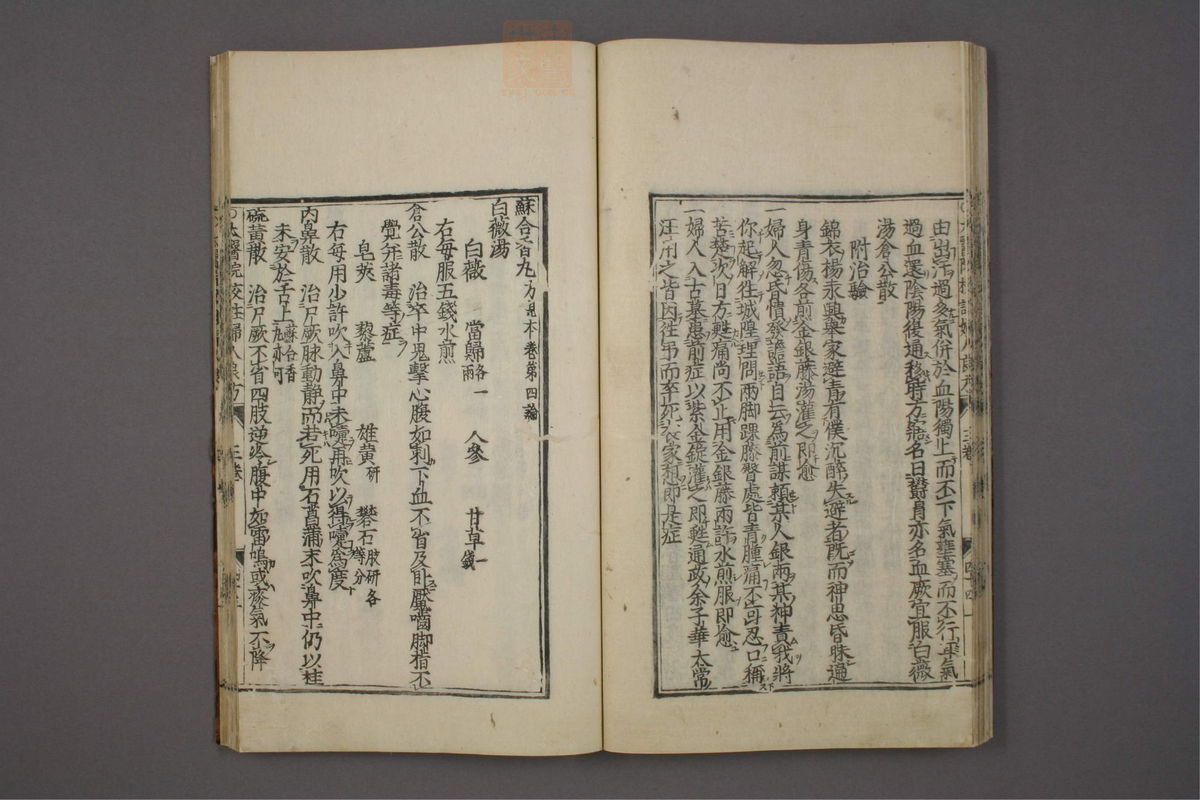 由出汗過多氣併於血陽獨上而不下氣壅塞而不行
過血還陰陽復通移時方寤名曰鬱冒亦名血厥宜服白薇
湯倉公散
附治驗
錦衣楊永興舉家避青有僕沉醉失避者既而神思昏昧遍
身青傷各煎金銀藤湯灌之即愈
一婦人忽昏憒發譫語自云為前謀賴某人銀兩某神責我將
你起解往城隍理問兩脚踝膝臀處皆青腫痛不可忍口稱
苦楚次日方甦痛尚不止用金銀藤兩許水煎服即愈
一婦人入古墓患前症以紫金錠灌之即甦通政余子華太常
汪用之皆因往弔而卒死喪家想即是症
蘇合香丸 方見本卷第四論
白薇湯
白薇 當歸各一兩 人參 甘草一錢
右每服五錢水煎
倉公散 治卒中鬼擊心腹如刺下血不省及臥魘嚙脚指不
覺并諸毒等症
皂莢 藜蘆 雄黃研 礬石胺研各等分
右每用少許吹入鼻中未嚏再吹以得嚏為度
內鼻散 治尸厥脉動靜而若死用石菖蒲末吹鼻中仍以桂
末安於舌上蘇合香丸亦可
硫黃散 治尸厥不省四肢逆冷腹中如雷鳴或痰氣不降
太醫院校註婦人良方 三卷